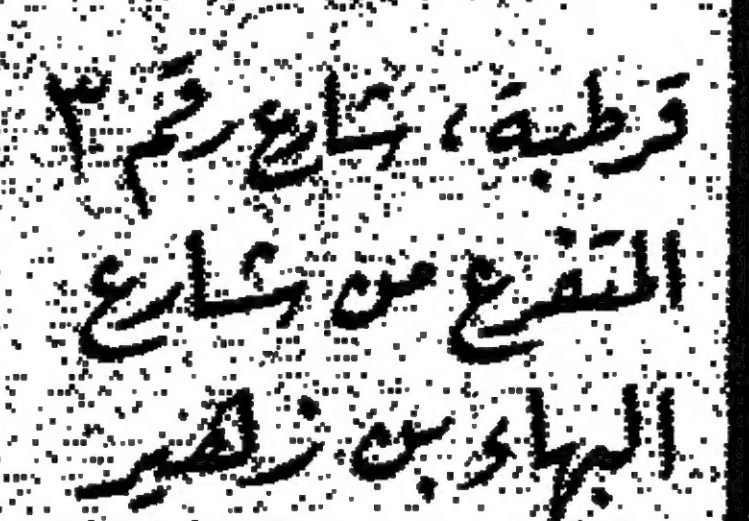 قرطبة، شارع رقم ٣
المتفرع من شارع
البهاء بن زهير